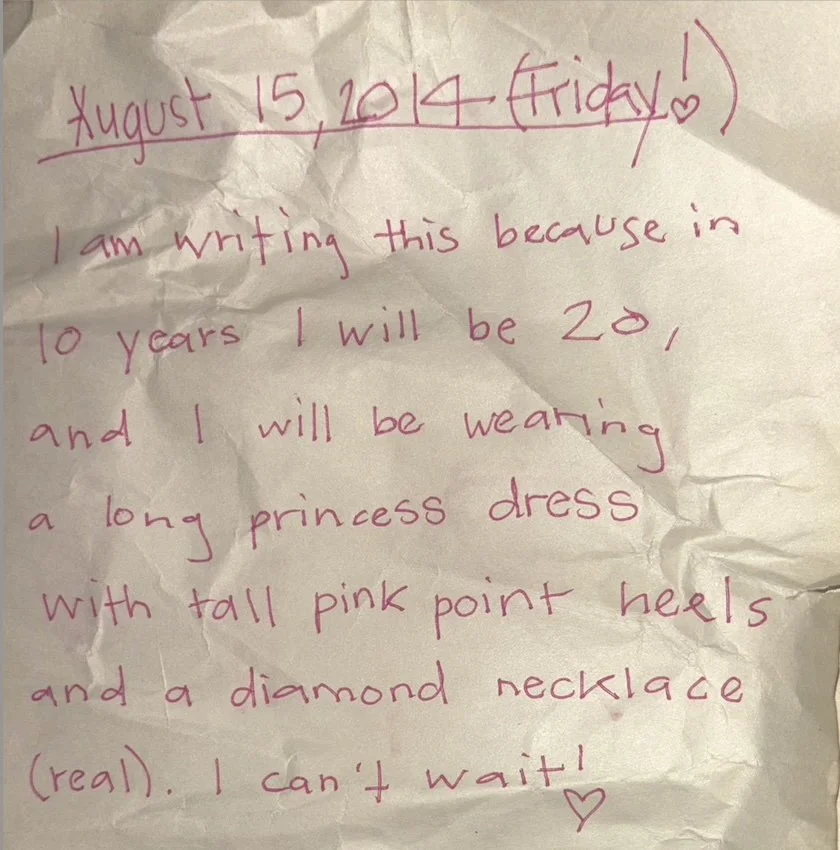 August 15, 2014 (Friday!)
I am writing this because in
10 years I will be 20,
and I will be wearing
a long princess dress
with tall pink point heels
and a diamond necklace
(real). I can't wait!